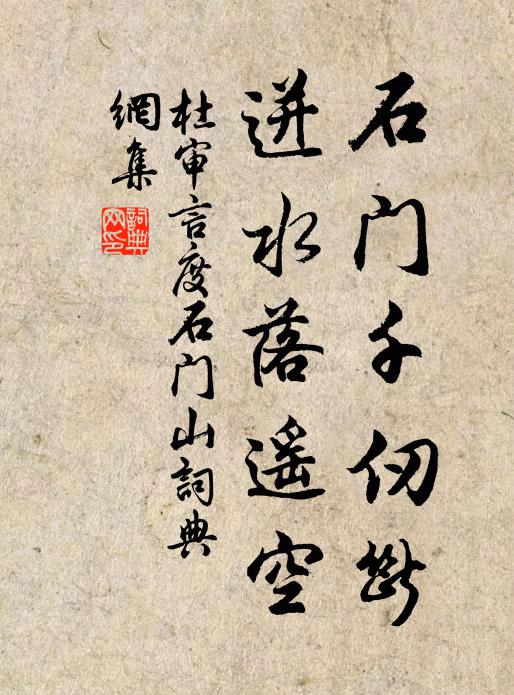 石门千仞斷
迸水落遥空
杜审言度石门山詞典
網集
詞典
网印